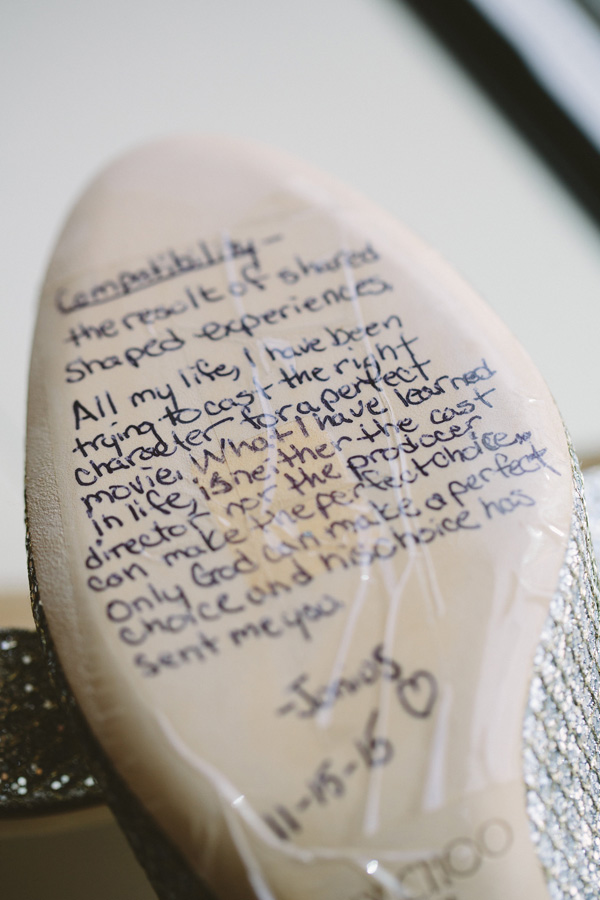 Compatibility -
the result of shared
shaped experiences.
All my life, I have been
trying to cast the right
character for a perfect
movie. What I have learned
in life, is neither the cast
director nor the producer
can make the perfect choice...
Only God can make a perfect
choice and his choice has
sent me you
11-15-15
CHOO